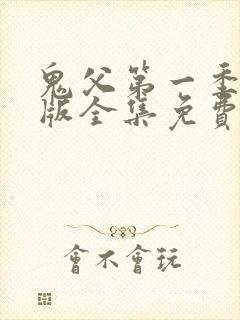 鬼父第一季
版全集免費
會不會玩